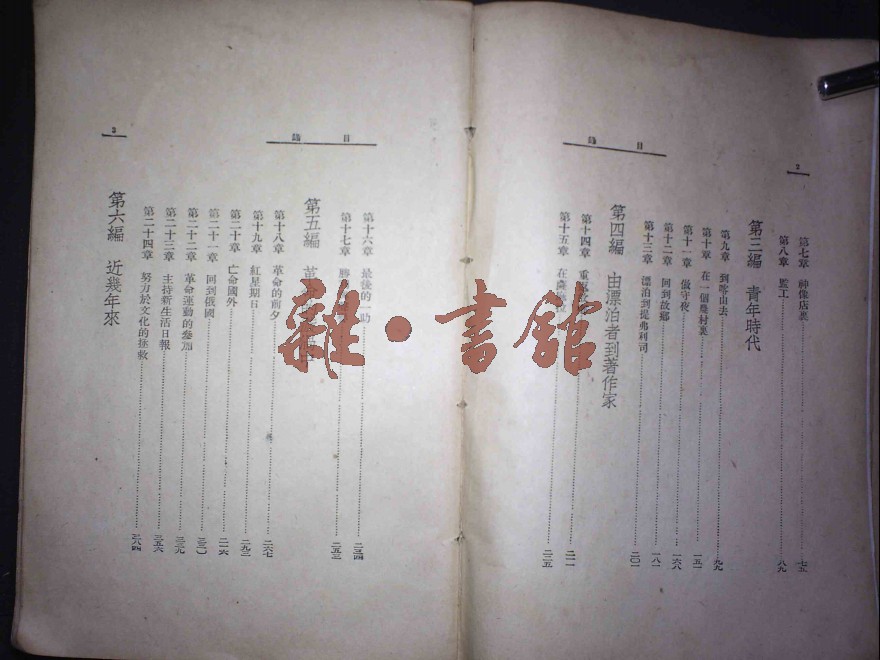 目 錄
2
第七章 神像店裏 七五
第八章 監工 八九
第三編 青年時代
第九章 到喀山去 九九
第十章 在一個農村裏 一五一
第十一章 做守夜 一六八
第十二章 回到故鄉 一八一
第十三章 漂泊到提弗利司 二〇一
第四編 由漂泊者到著作家
第十四章 重 二一一
第十五章 在 二三五
目 錄
第十六章 最後的一助
第十七章 二五三
第五編 革
第十八章 革命的前夕 二六七
第十九章 紅星期日 二九三
第二十章 亡命國外
第二十一章 回到俄國
第二十二章 革命運動的參加
第二十三章 主持新生活日報 三五六
第二十四章 努力於文化的拯救 三六四
第六編 近幾年來
雜·書館